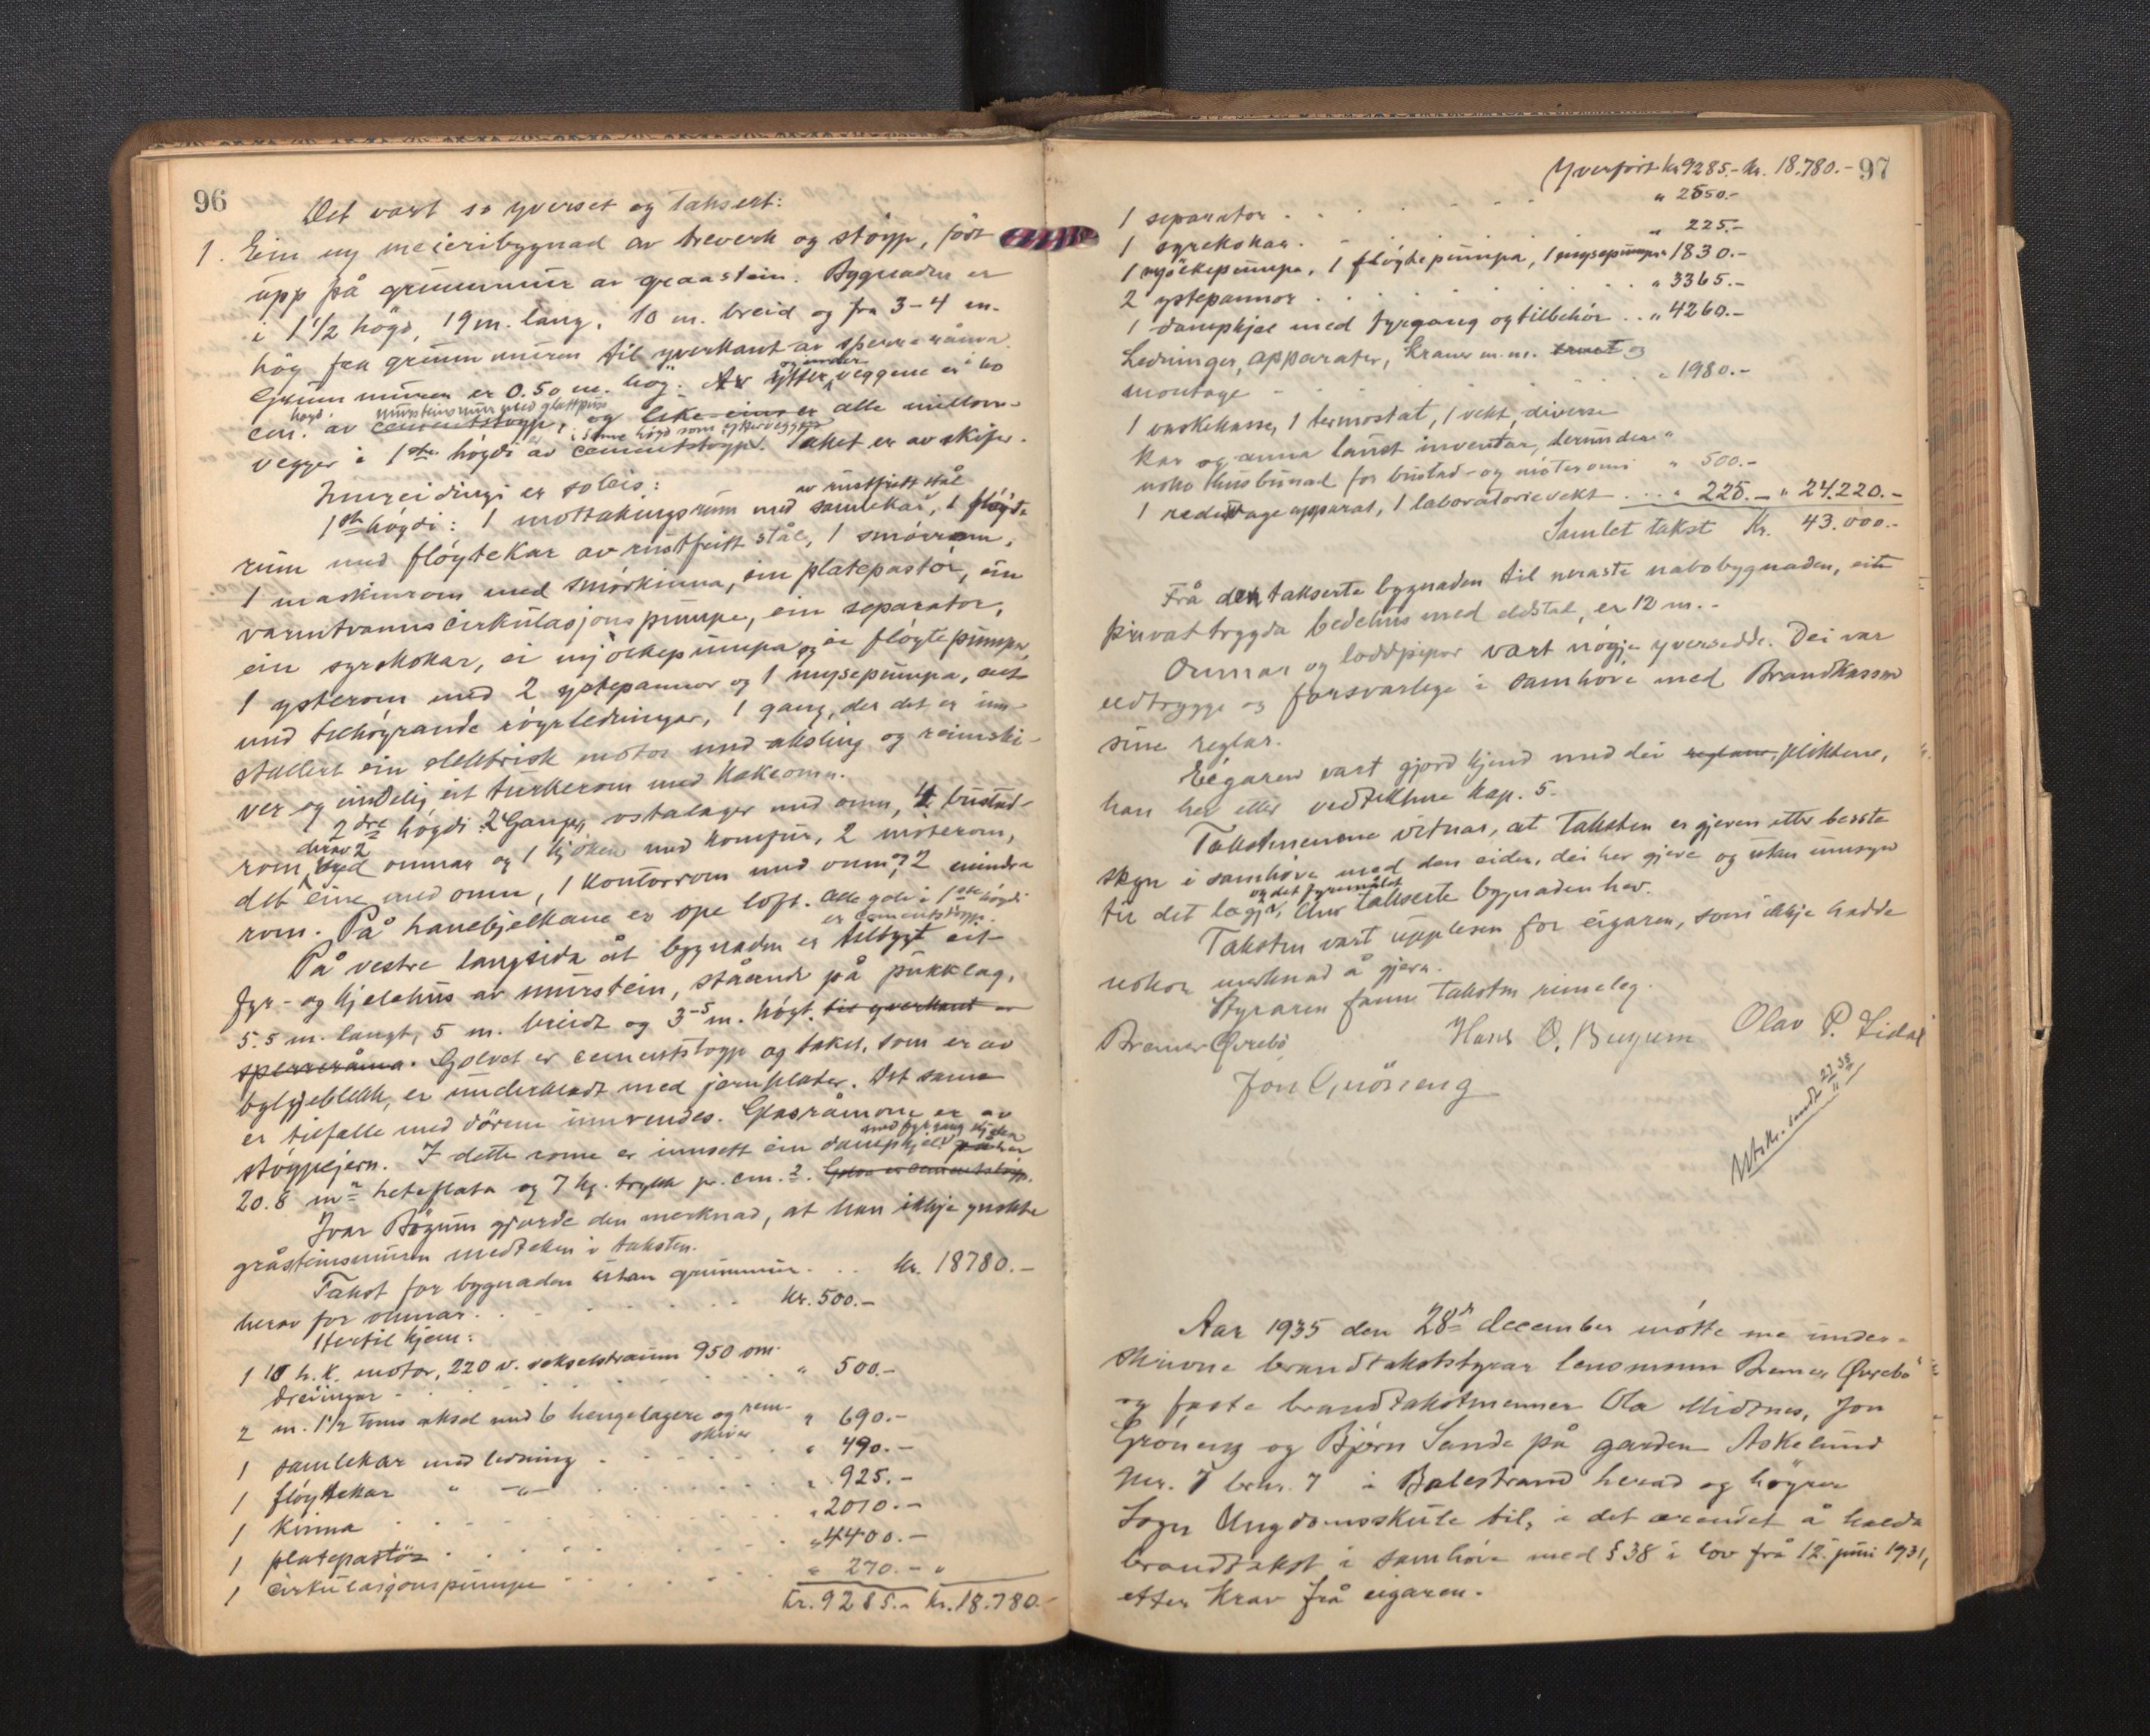 96
Det vart so yverset og taksert:
1. Ein ny meieribygnad av treverk og støyp, ført
upp på grunnmur av graastein. Bygnaden er
i 1 1/2 høgd, 19 m. lang, 10 m. breid og fra 3-4 m.
høg fra grunnmuren til yverkant av sperreråma.
Grunnmuren er 0.50 m. høg. Av ytter og inder veggene er i 60
cm. høgd av mursteinsmur med glattpuss cementstøyp, og like eins er alle millom-
vegger i 1ste høgdi er i same høgd som ytterveggene av cementstøypt. Taket er av skifer.
Innreidingi er soleis:
1ste høgdi: 1 mottakingsrum med samlekar av rustfritt stål, 1 fløyte-
rum med fløytekar av rustfritt stål, 1 smørrom,
1 maskinrom med smørkinna, ein platepastör, ein
varmtvannscirkulasjonspumpe, ein separator,
ein syrekokar, ei mjölkepumpa og ei fløytepumpa
1 ysterom med 2 ystepannor og 1 mysepumpa, alt
med tilhøyrande røyrledningar, 1 gang, der det er inn-
stallert ein elektrisk motor med aksling og reimski-
ver og endelig eit turkerom med kakeomn.
2dre høgdi: 2 Ganger, ostalager med omn, 4 bustad-
rom, derav 2 med omnar og 1 kjöken med komfur, 2 møterom,
det eine med omn, 1 kontorrom med omn og 2 mindre
rom. På hanebjelkane er ope loft. Alle golv i 1ste høgdi
er cementstøypt.
På vestre langsida åt bygnaden er tilbygt eit
fyr- og kjelehus av murstein, ståande på pukklag,
5.5 m. langt, 5 m. breidt og 3-5 m. høgt. til yverkant av
sperreråma. Golvet er cementstøyp og taket, som er av
bylgjeblekk, er underkledt med jernplater. Det same
er tilfelle med dørene innvendes. Glasråmone er av
støypejern. I dette rome er innsett ein dampkjel med fyrgang
20.8 m² heteflata og 7 kg. trykk pr. cm.². Golva er cementstøyp.
Ivar Bøyum gjorde den merknad, at han ikkje ynskte
gråsteinsmuren medteken i taksten.
Takst for bygnaden utan grunnmur . . . kr. 18780.-
herav for omnar . . . . . . . kr. 500.-
Hertil kjem:
1 10 h.k. motor, 220 v. vekselstraum 950 om-
dreiingar - . . . . . . . . . " 500.-
2 m. 1 1/2 toms aksel med 6 hengelagere og reim-
skiver " 690.-
1 samlekar med ledning . . . . . . " 490.-
1 fløytekar " -"- . . . . . . . " 925.-
1 Kinna . . . . . . . . . . . . " 2010.-
1 platepastör . . . . . . . . . . " 4400.-
1 cirkulasjonspumpe . . . . . . . " 270.- "
kr. 9285.- kr. 18.780.-
Yverført kr 9285.- kr. 18.780.- 97
1 separator . . . . . . . " 2550.-
1 syrekokar . . . . . . . " 225.-
1 mjölkepumpa, 1 fløytepumpa, 1 mysepumpa " 1830.-
2 ystepannor . . . . . . . " 3365.-
1 dampkjel med fyrgang og tilbehör . . " 4260.-
Ledninger, apparater, kraner m.m. og
montage - . . . . . . . " 1980.-
1 vaskekasse, 1 termostat, 1 vekt, diverse
kar og anna laust inventar, herunder "
noko husbunad for bustad- og møteromi " 500.-
1 apparat, 1 laboratorievekt . . . . " 225.- " 24.220.-
Samlet takst Kr. 43.000.-
Frå den takserte bygnaden til neraste nabobygnaden, eit
privattrygda bedehus med eldstad, er 12 m. -
Omnar og loddpipor vart nøgje yversedde. Dei var
eldtrygge og forsvarlege i samhøve med Brandkassen
sine reglar.
Eigaren vart gjord kjend med dei reglane, pliktene,
han hev etter vedtektene kap. 5.
Takstmennene vitnar, at taksten er gjeven etter beste
skyn i samhøve med den eiden, dei hev gjeve og utan umsyn
til det lægje og det fyremålet, den takserte bygnaden hev.
Taksten vart upplesen for eigaren, som ikkje hadde
nokon merknad å gjera.
Styraren fann taksten rimeleg.
Bremer Øvrebö Hans O. Bøyum Olav P. Lidal
Jon Gröneng
Utskr. sendt 27/11 35
Aar 1935 den 28de december møtte me under-
skrivne brandtakststyrar lensmann Bremer Øvrebö
og faste brandtakstmenner Ola Midtnes, Jon
Grøneng og Bjørn Sande på garden Askelund
gnr. 7 brnr. 7 i Balestrand herad og høyrer
Sogn Ungdomsskule til, i det ærendet å halda
brandtakst i samhøve med § 38 i lov frå 12. juni 1931,
etter krav frå eigaren.